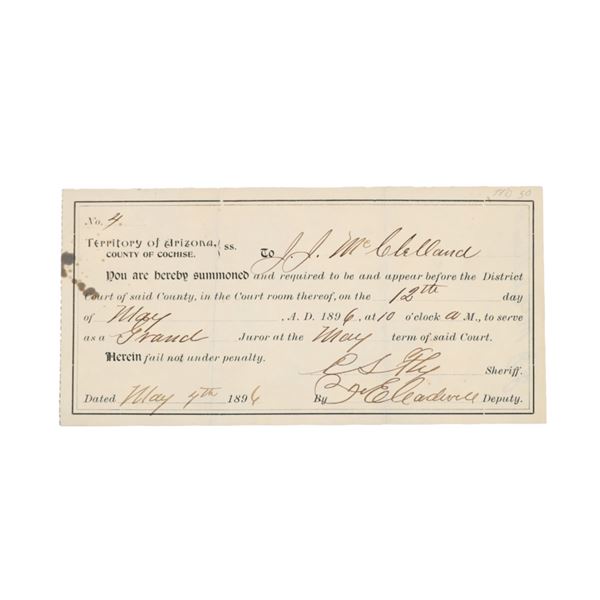 No. 4.
Territory of Arizona, ss.
COUNTY OF COCHISE.
To J. J. McClelland
You are hereby summoned and required to be and appear before the District
Court of said County, in the Court room thereof, on the 12th day
of May A. D. 1896, at 10 o'clock a M., to serve
as a Grand Juror at the May term of said Court.
Herein fail not under penalty.
C S Fly Sheriff.
Dated May 7th 1896 By Deputy.